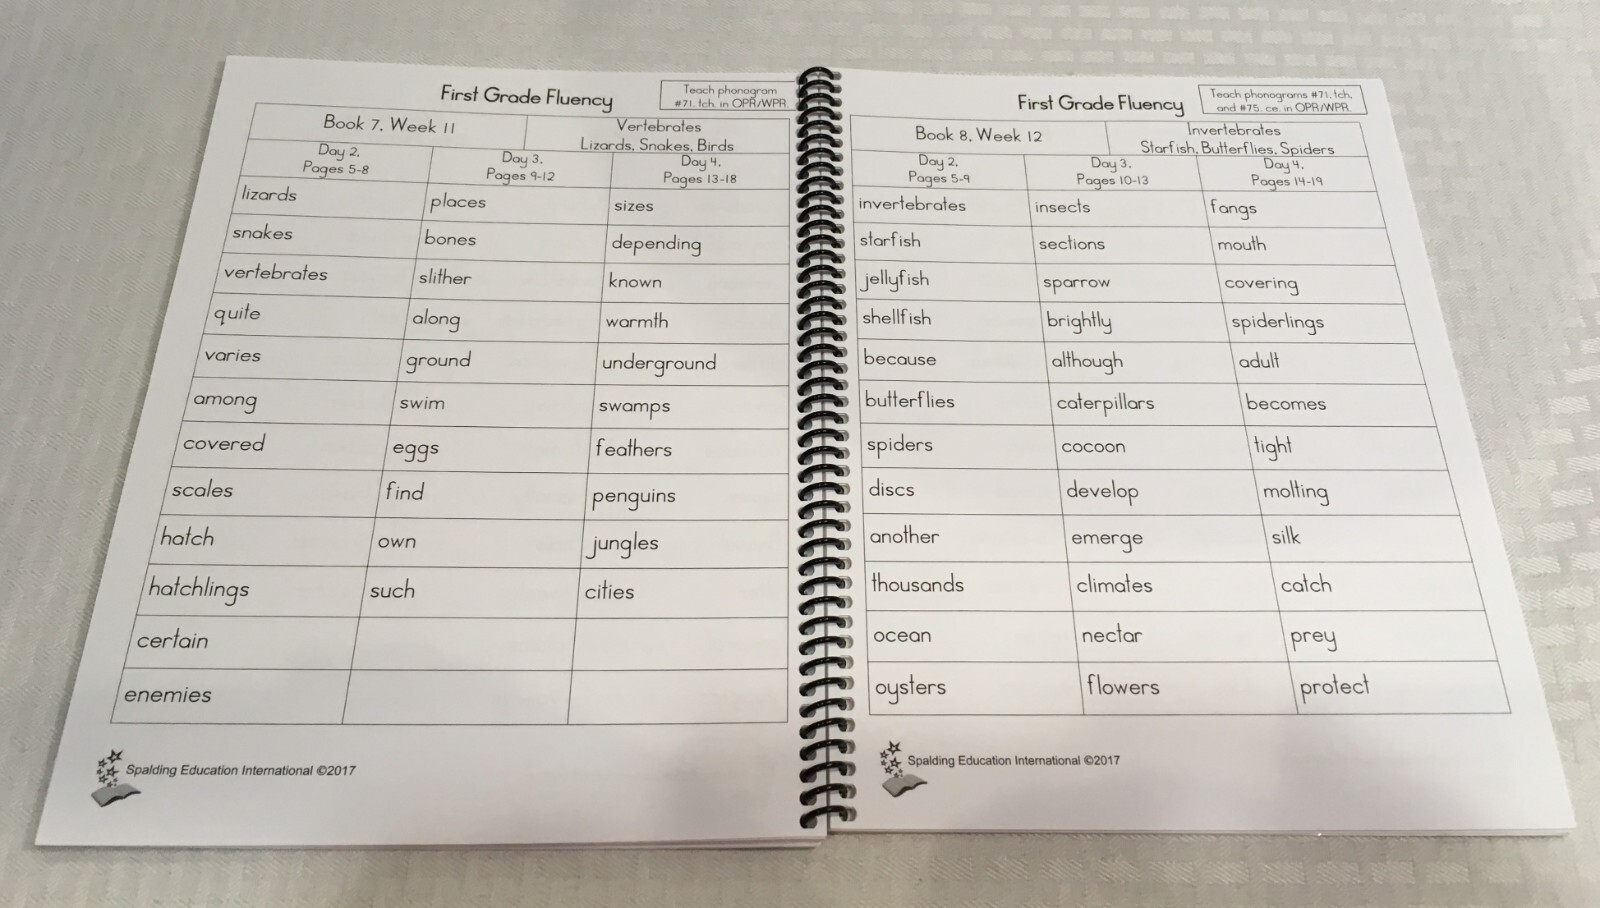 First Grade Fluency
Teach phonogram
#71, tch, in OPR/WPR.
Book 7, Week 11
Vertebrates
Lizards, Snakes, Birds
Day 2,
Pages 5-8
Day 3,
Pages 9-12
Day 4,
Pages 13-18
lizards places sizes
snakes bones depending
vertebrates slither known
quite along warmth
varies ground underground
among swim swamps
covered eggs feathers
scales find penguins
hatch own jungles
hatchlings such cities
certain
enemies
Spalding Education International ©2017
First Grade Fluency
Teach phonograms #71, tch,
and #75, ce, in OPR/WPR.
Book 8, Week 12
Invertebrates
Starfish, Butterflies, Spiders
Day 2,
Pages 5-9
Day 3,
Pages 10-13
Day 4,
Pages 14-19
invertebrates insects fangs
starfish sections mouth
jellyfish sparrow covering
shellfish brightly spiderlings
because although adult
butterflies caterpillars becomes
spiders cocoon tight
discs develop molting
another emerge silk
thousands climates catch
ocean nectar prey
oysters flowers protect
Spalding Education International ©2017